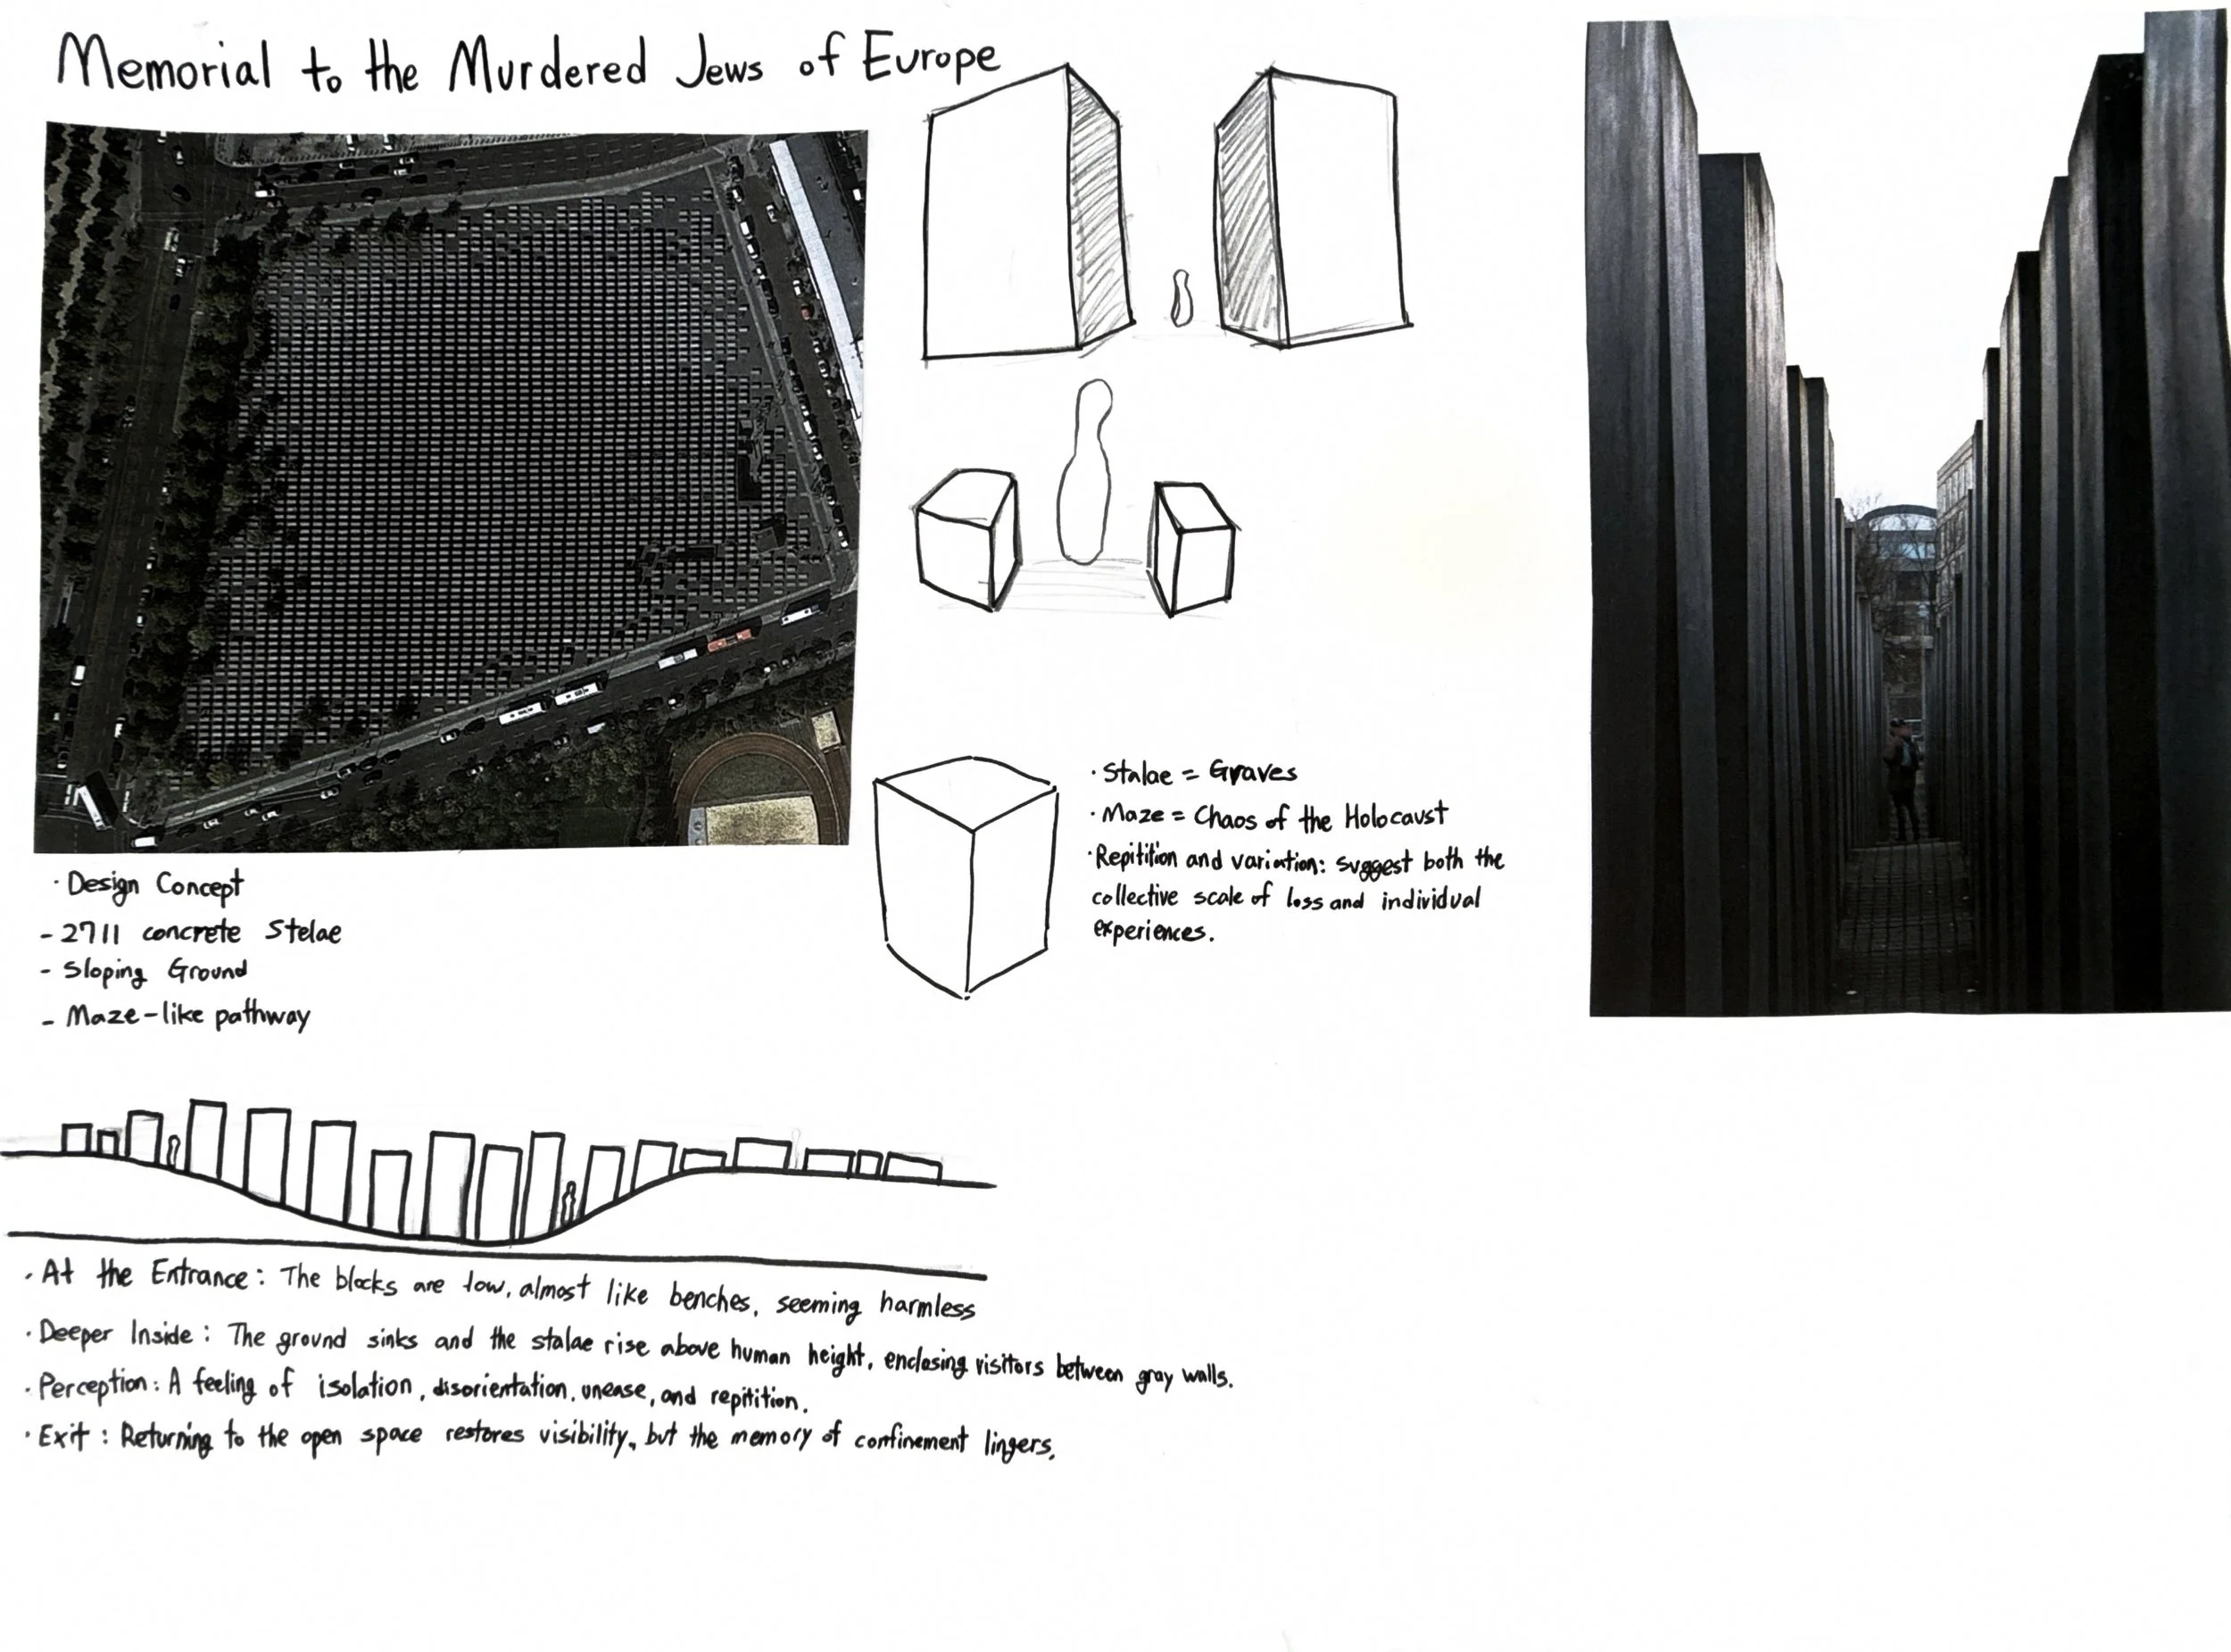 Memorial to the Murdered Jews of Europe
· Design Concept
- 2711 concrete Stelae
- Sloping Ground
- Maze-like pathway
· Stalae = Graves
· Maze = Chaos of the Holocaust
· Repitition and variation: suggest both the
collective scale of loss and individual
experiences.
· At the Entrance: The blocks are low, almost like benches, seeming harmless
· Deeper Inside: The ground sinks and the stalae rise above human height, enclosing visitors between gray walls.
· Perception: A feeling of isolation, disorientation, unease, and repitition.
· Exit: Returning to the open space restores visibility, but the memory of confinement lingers.